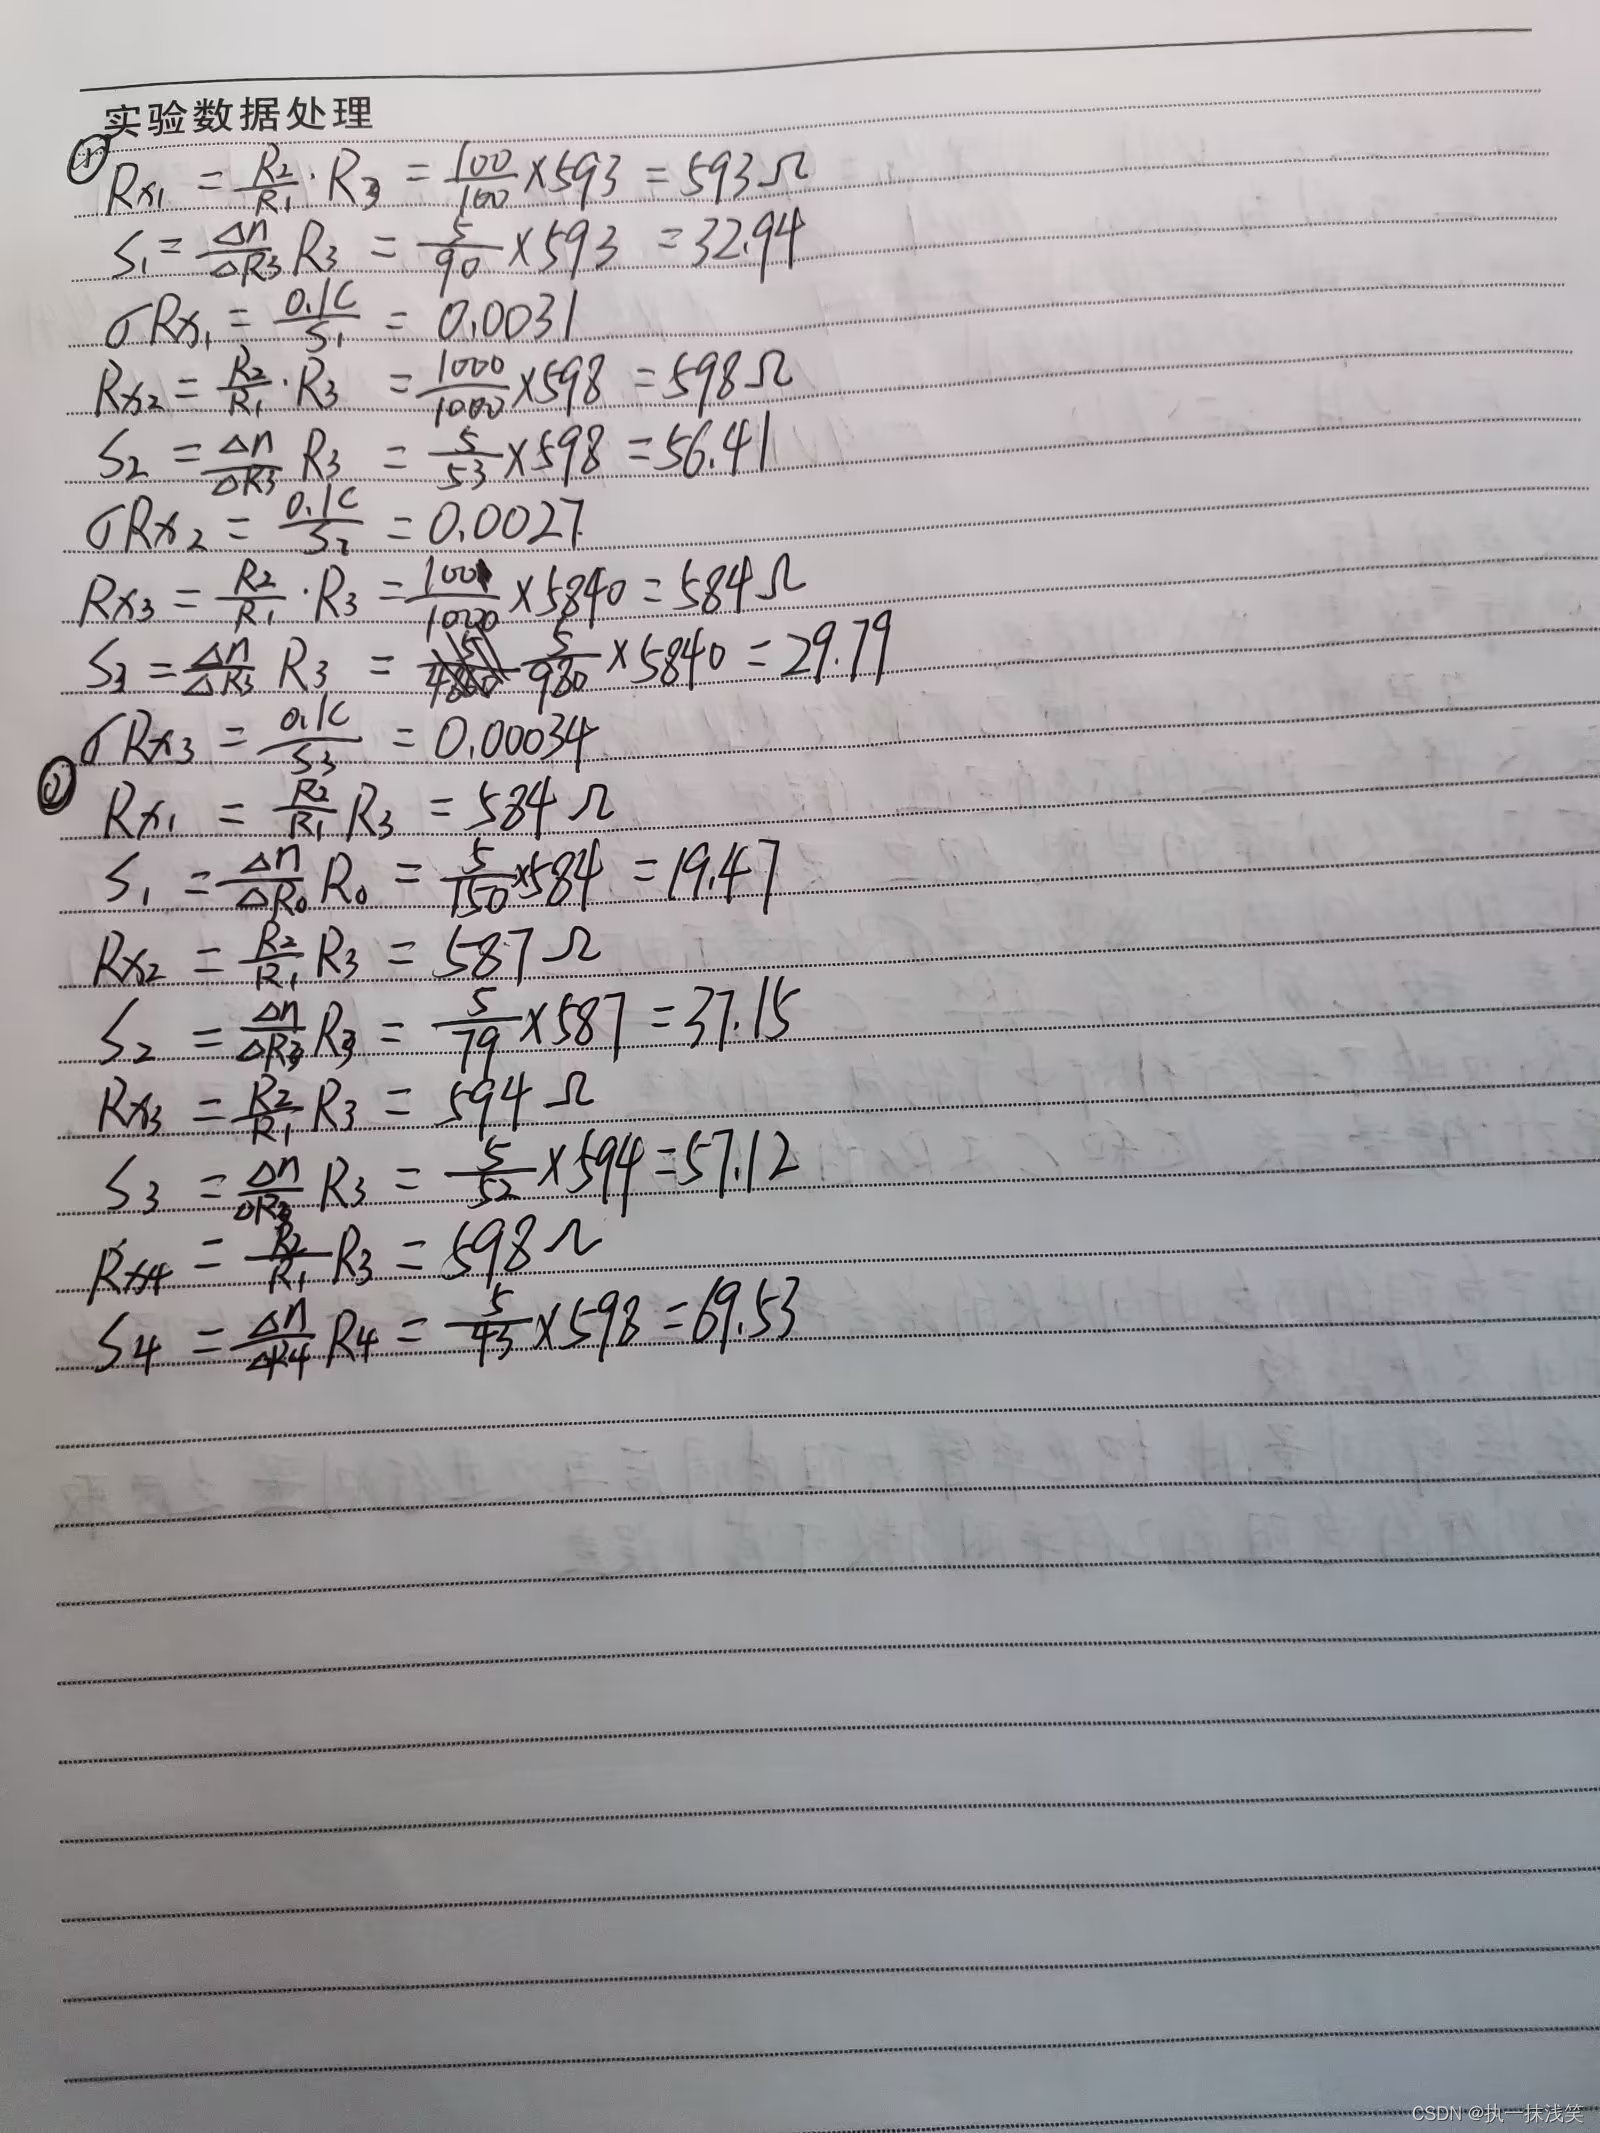 实验数据处理
① Rx₁ = R₂/R₁ · R₃ = 100/100 × 593 = 593Ω
S₁ = Δn/ΔR₃ R₃ = 5/90 × 593 = 32.94
σRx₁ = 0.1C/S₁ = 0.0031
Rx₂ = R₂/R₁ · R₃ = 1000/1000 × 598 = 598Ω
S₂ = Δn/ΔR₃ R₃ = 5/53 × 598 = 56.41
σRx₂ = 0.1C/S₂ = 0.0027
Rx₃ = R₂/R₁ · R₃ = 100/1000 × 5840 = 584Ω
S₃ = Δn/ΔR₃ R₃ = 5/980 × 5840 = 29.79
σRx₃ = 0.1C/S₃ = 0.00034
② Rx₁ = R₂/R₁ R₃ = 584Ω
S₁ = Δn/ΔR₀ R₀ = 5/150 × 584 = 19.47
Rx₂ = R₂/R₁ R₃ = 587Ω
S₂ = Δn/ΔR₃ R₃ = 5/79 × 587 = 37.15
Rx₃ = R₂/R₁ R₃ = 594Ω
S₃ = Δn/ΔR₃ R₃ = 5/52 × 594 = 57.12
Rx₄ = R₂/R₁ R₃ = 598Ω
S₄ = Δn/ΔR₄ R₄ = 5/43 × 598 = 69.53
CSDN @执一抹浅笑